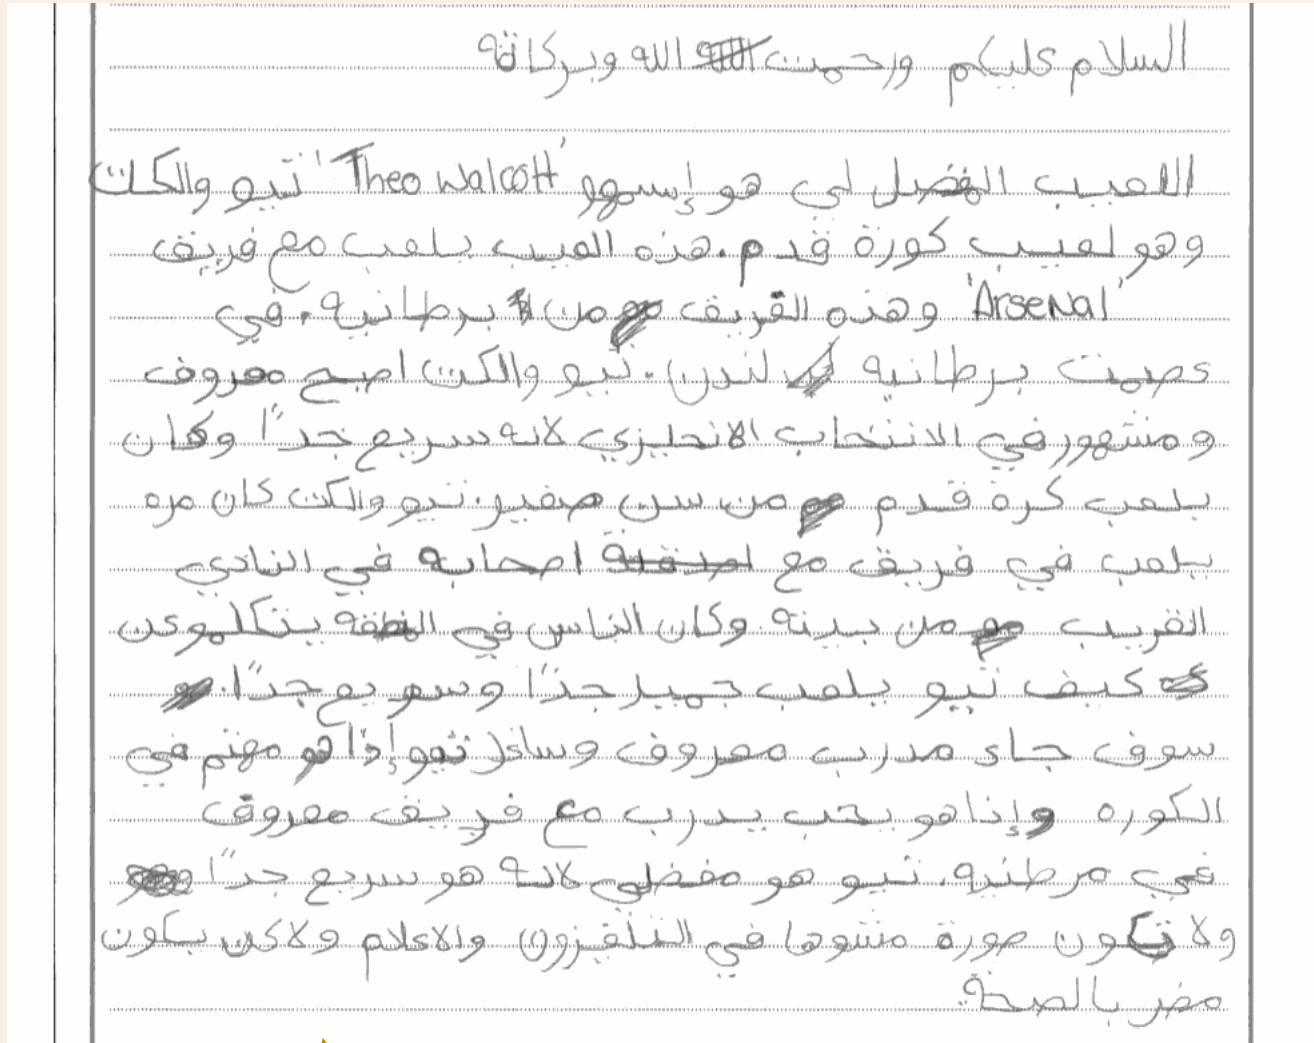 السلام عليكم ورحمت الله وبركاتة
اللعيب المفضل لي هو إسمهو 'Theo Walcott' تيو والكت
وهو لعيب كورة قدم. هذه العيب يلعب مع فريق
'Arsenal' وهذه الفريق من برطانيه. في
عصمت برطانيه لندن. تيو والكت اصبح معروف
ومشهور في الانتخاب الانجليزي لانه سريع جداً وكان
يلعب كرة قدم من سن صغير. تيو والكت كان مره
يلعب في فريق مع اصحابه في النادي
القريب من بيته. وكان الناس في المنطقه يتكلمو عن
كيف تيو يلعب جميل جداً وسريع جداً.
سوف جاء مدرب معروف وسائل تيو إذا هو مهتم في
الكوره وإذا هو يحب يدرب مع فريق معروف
في برطنيه. تيو هو مفضلي لانه هو سريع جداً
ولا تكون صورة مشوها في التلفزيون والاعلام ولاكن يكون
مضر بالصحة.